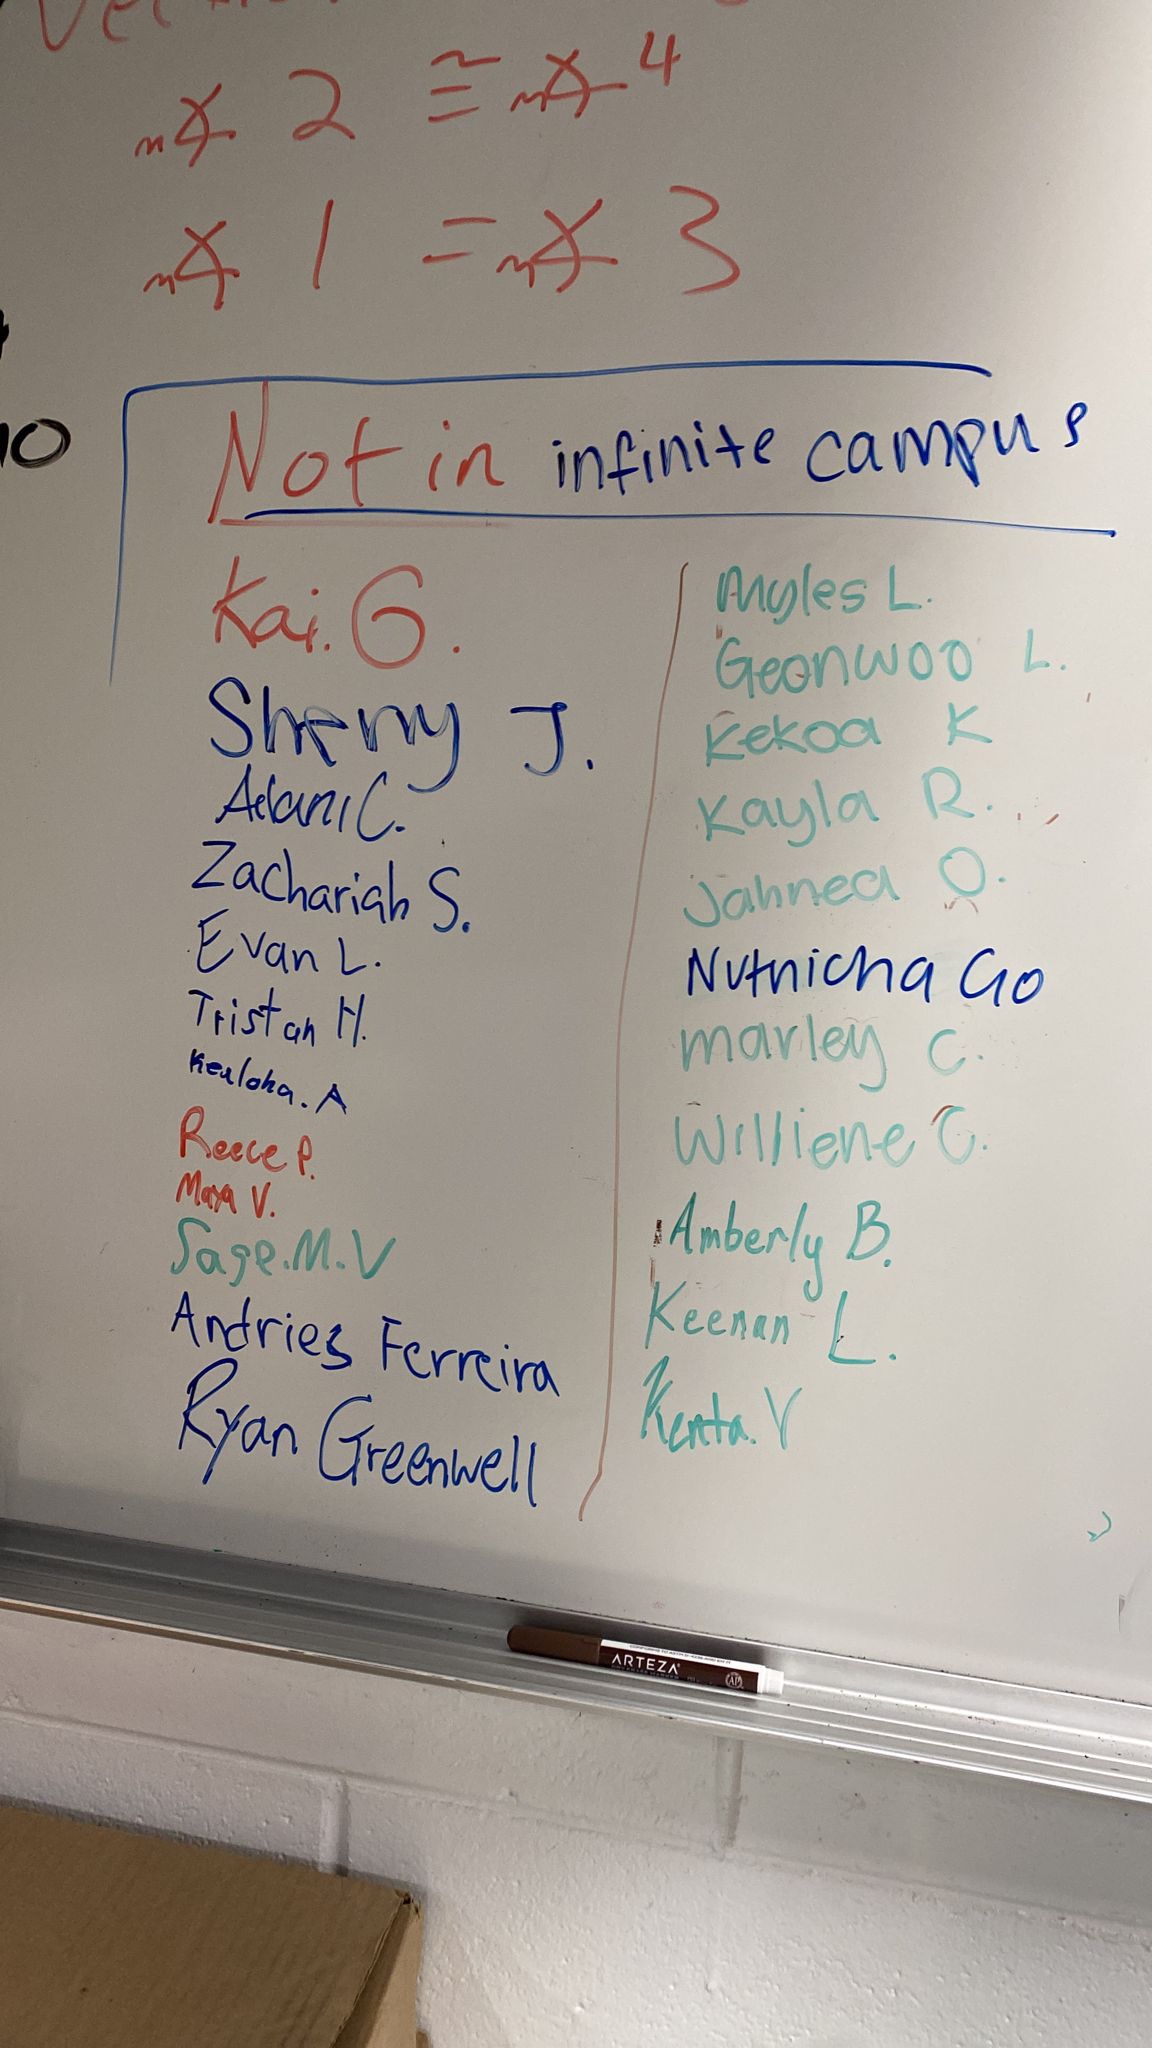 m∡ 2 ≅ m∡ 4
m∡ 1 = m∡ 3
10
Not in infinite campus
Kai. G.
Sherry J.
Adani C.
Zachariah S.
Evan L.
Tristan H.
Kealoha. A
Reece P.
Maya V.
Sage.M.V
Andries Ferreira
Ryan Greenwell
Myles L.
Geonwoo L.
Kekoa K
Kayla R.
Jahnea O.
Nutnicha Go
Marley C.
Williene C.
Amberly B.
Keenan L.
Kenta. V
ARTEZA
AP